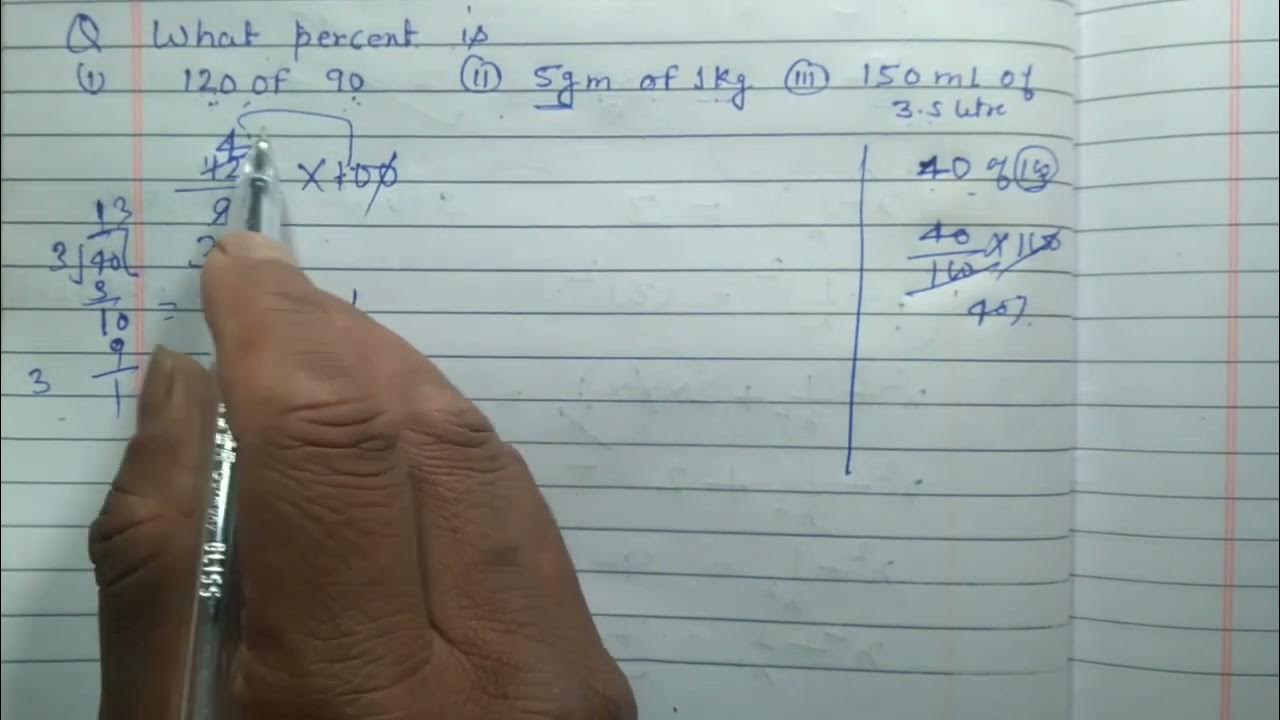 Q What percent is
(i) 120 of 90 (ii) 5gm of 1kg (iii) 150 mL of
3.5 litre
4
12 × 100
9
3
13
3 40
3
10 =
9
3
1
40 of
40 × 100
100
40%
BLISS